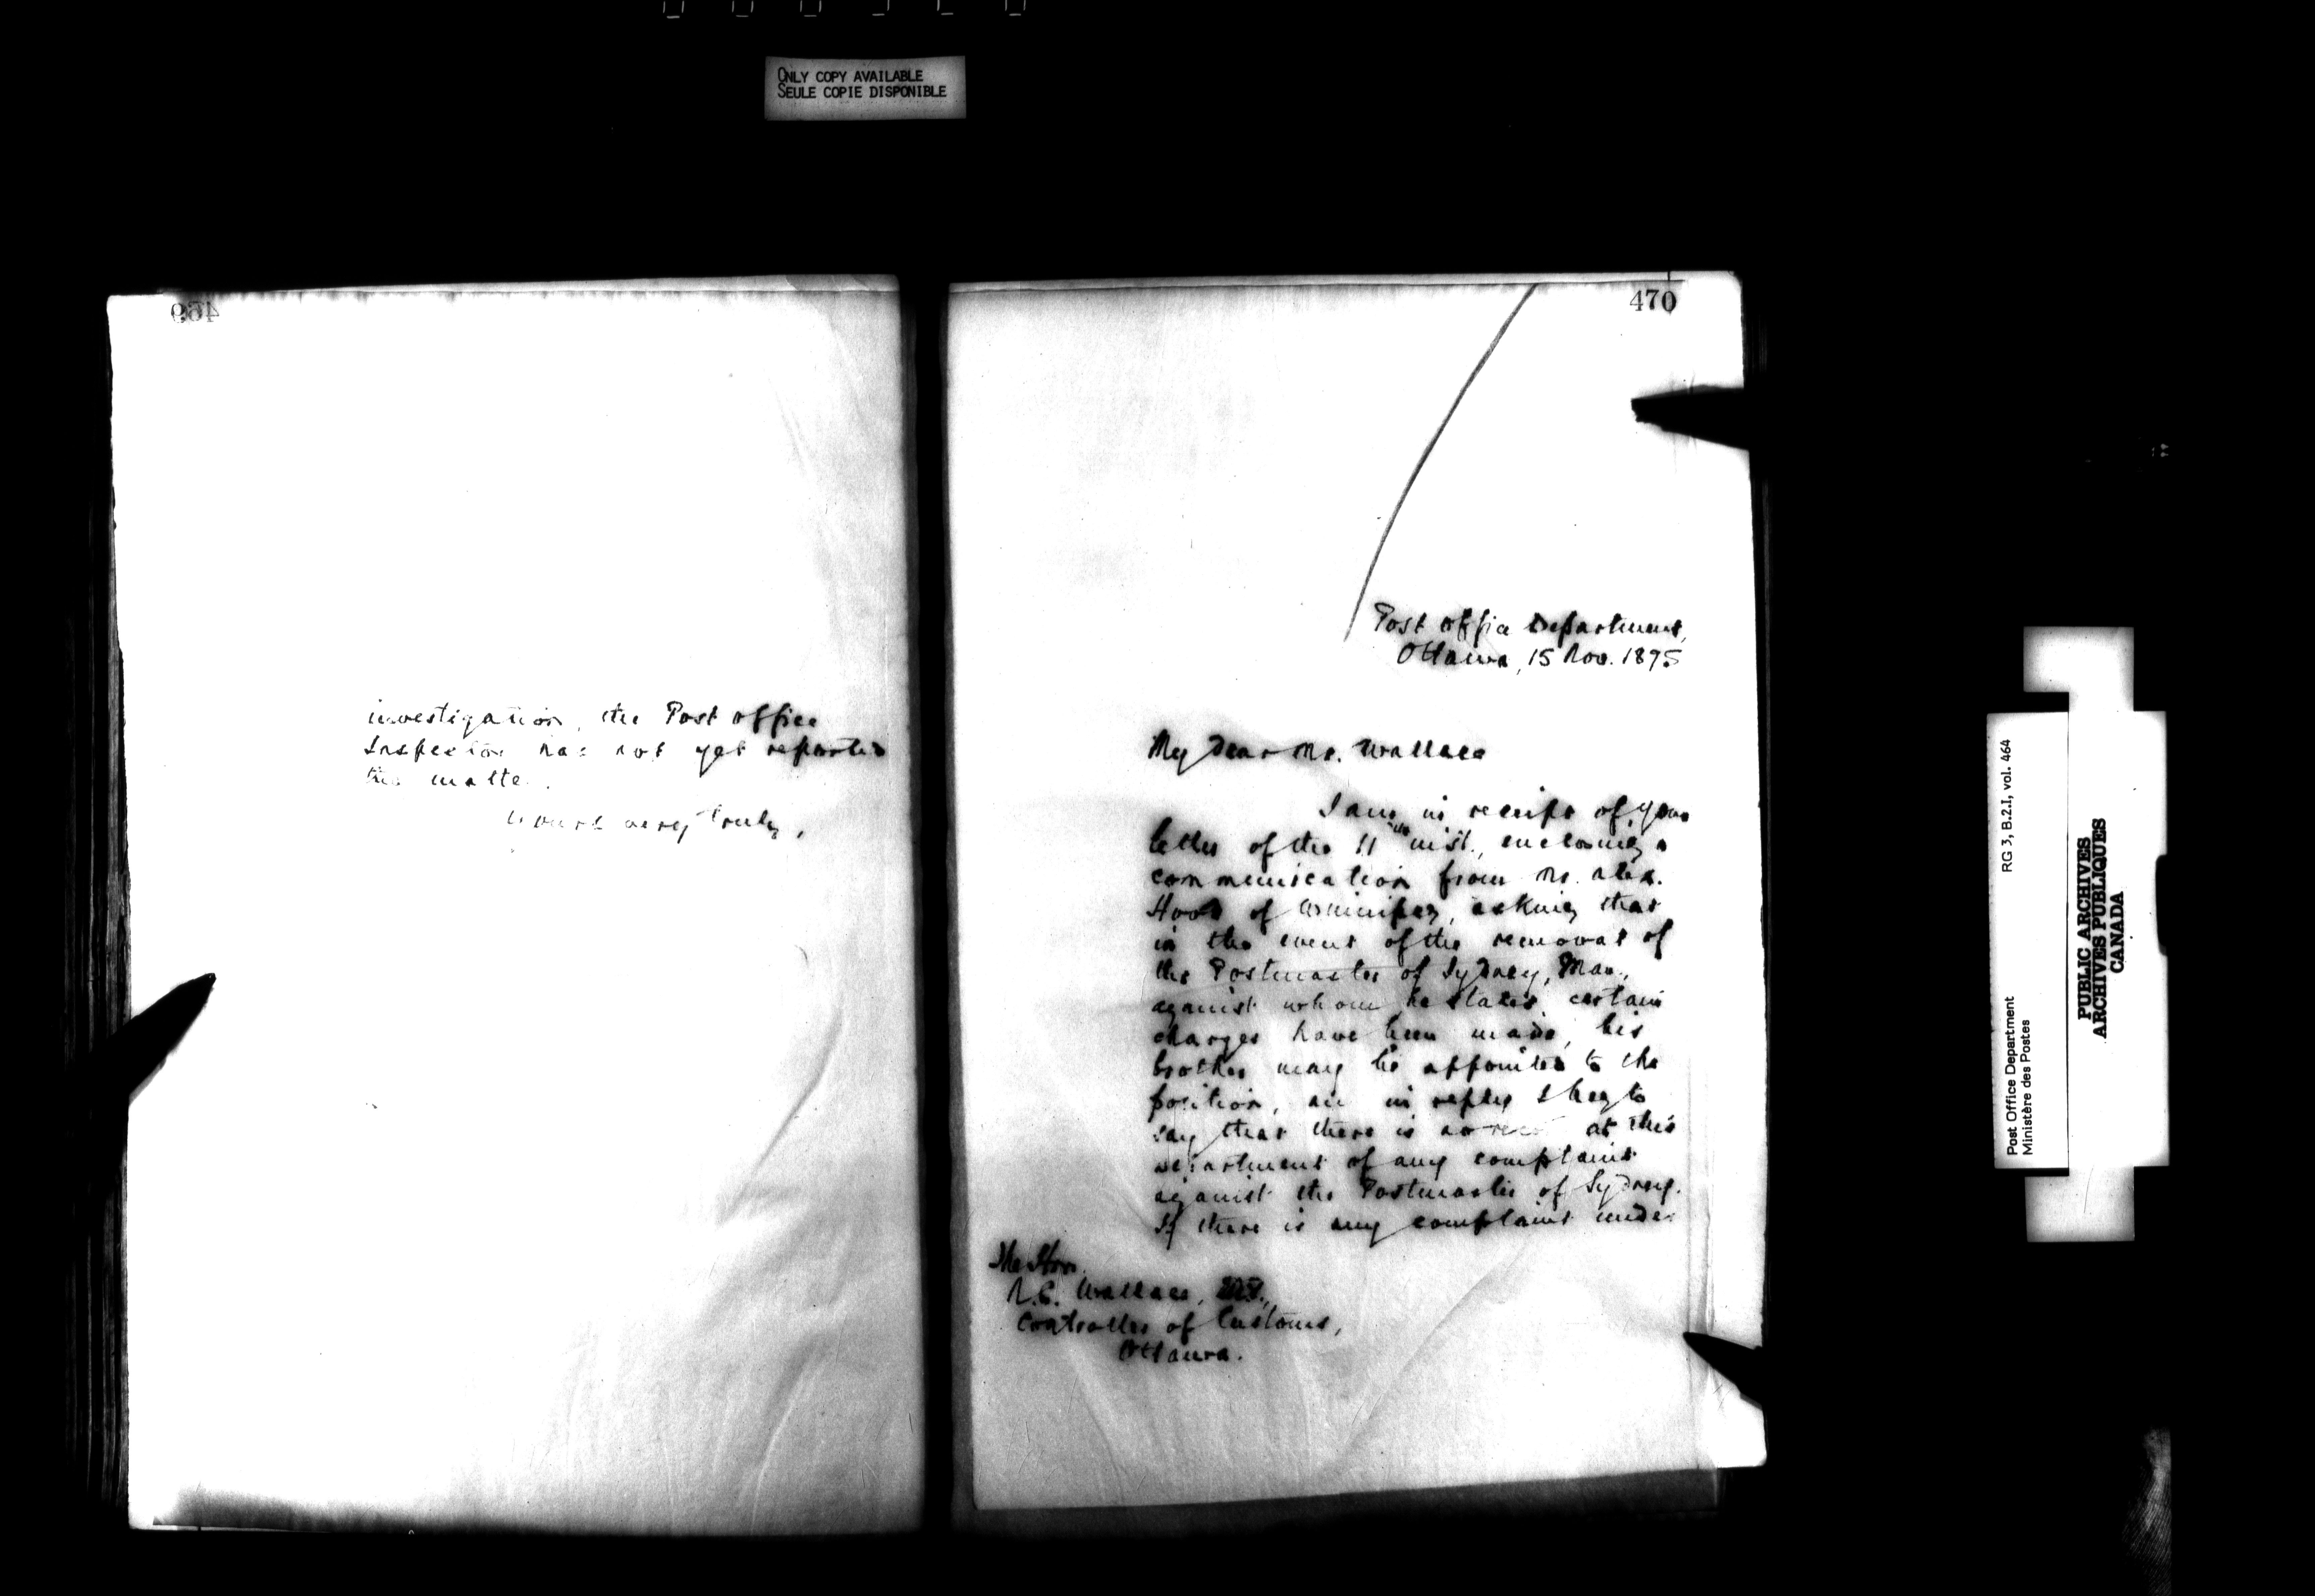 ONLY COPY AVAILABLE
SEULE COPIE DISPONIBLE
469
investigation, the Post office
Inspector has not yet reported
the matter.
Yours very truly,
470
Post office Department,
Ottawa, 15 Nov. 1895
My Dear Mr. Wallace
I am in receipt of your
letter of the 11th inst., enclosing a
communication from Mr. Alex.
of Winnipeg, asking that
in the event of the removal of
the Postmaster of Sydney, Man.,
against whom he states certain
charges have been made, his
brother may be appointed to the
position, and in reply I beg to
say that there is no record at this
Department of any complaint
against the Postmaster of Sydney.
If there is any complaint under
The Hon.
N.C. Wallace, M.P.,
Controller of Customs,
Ottawa.
Post Office Department RG 3, B.2.I, vol. 464
Ministère des Postes
PUBLIC ARCHIVES
ARCHIVES PUBLIQUES
CANADA